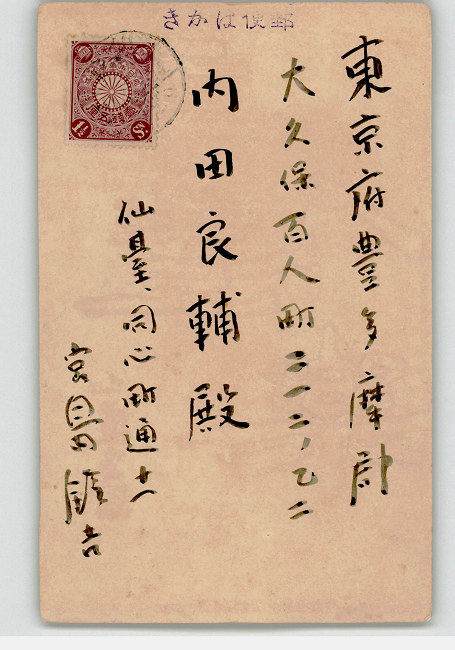 きかは便郵
東京府豊多摩郡
大久保百人町二一二、乙二
内田良輔殿
仙臺、同心町通十一
宮
吉
1½Sn.